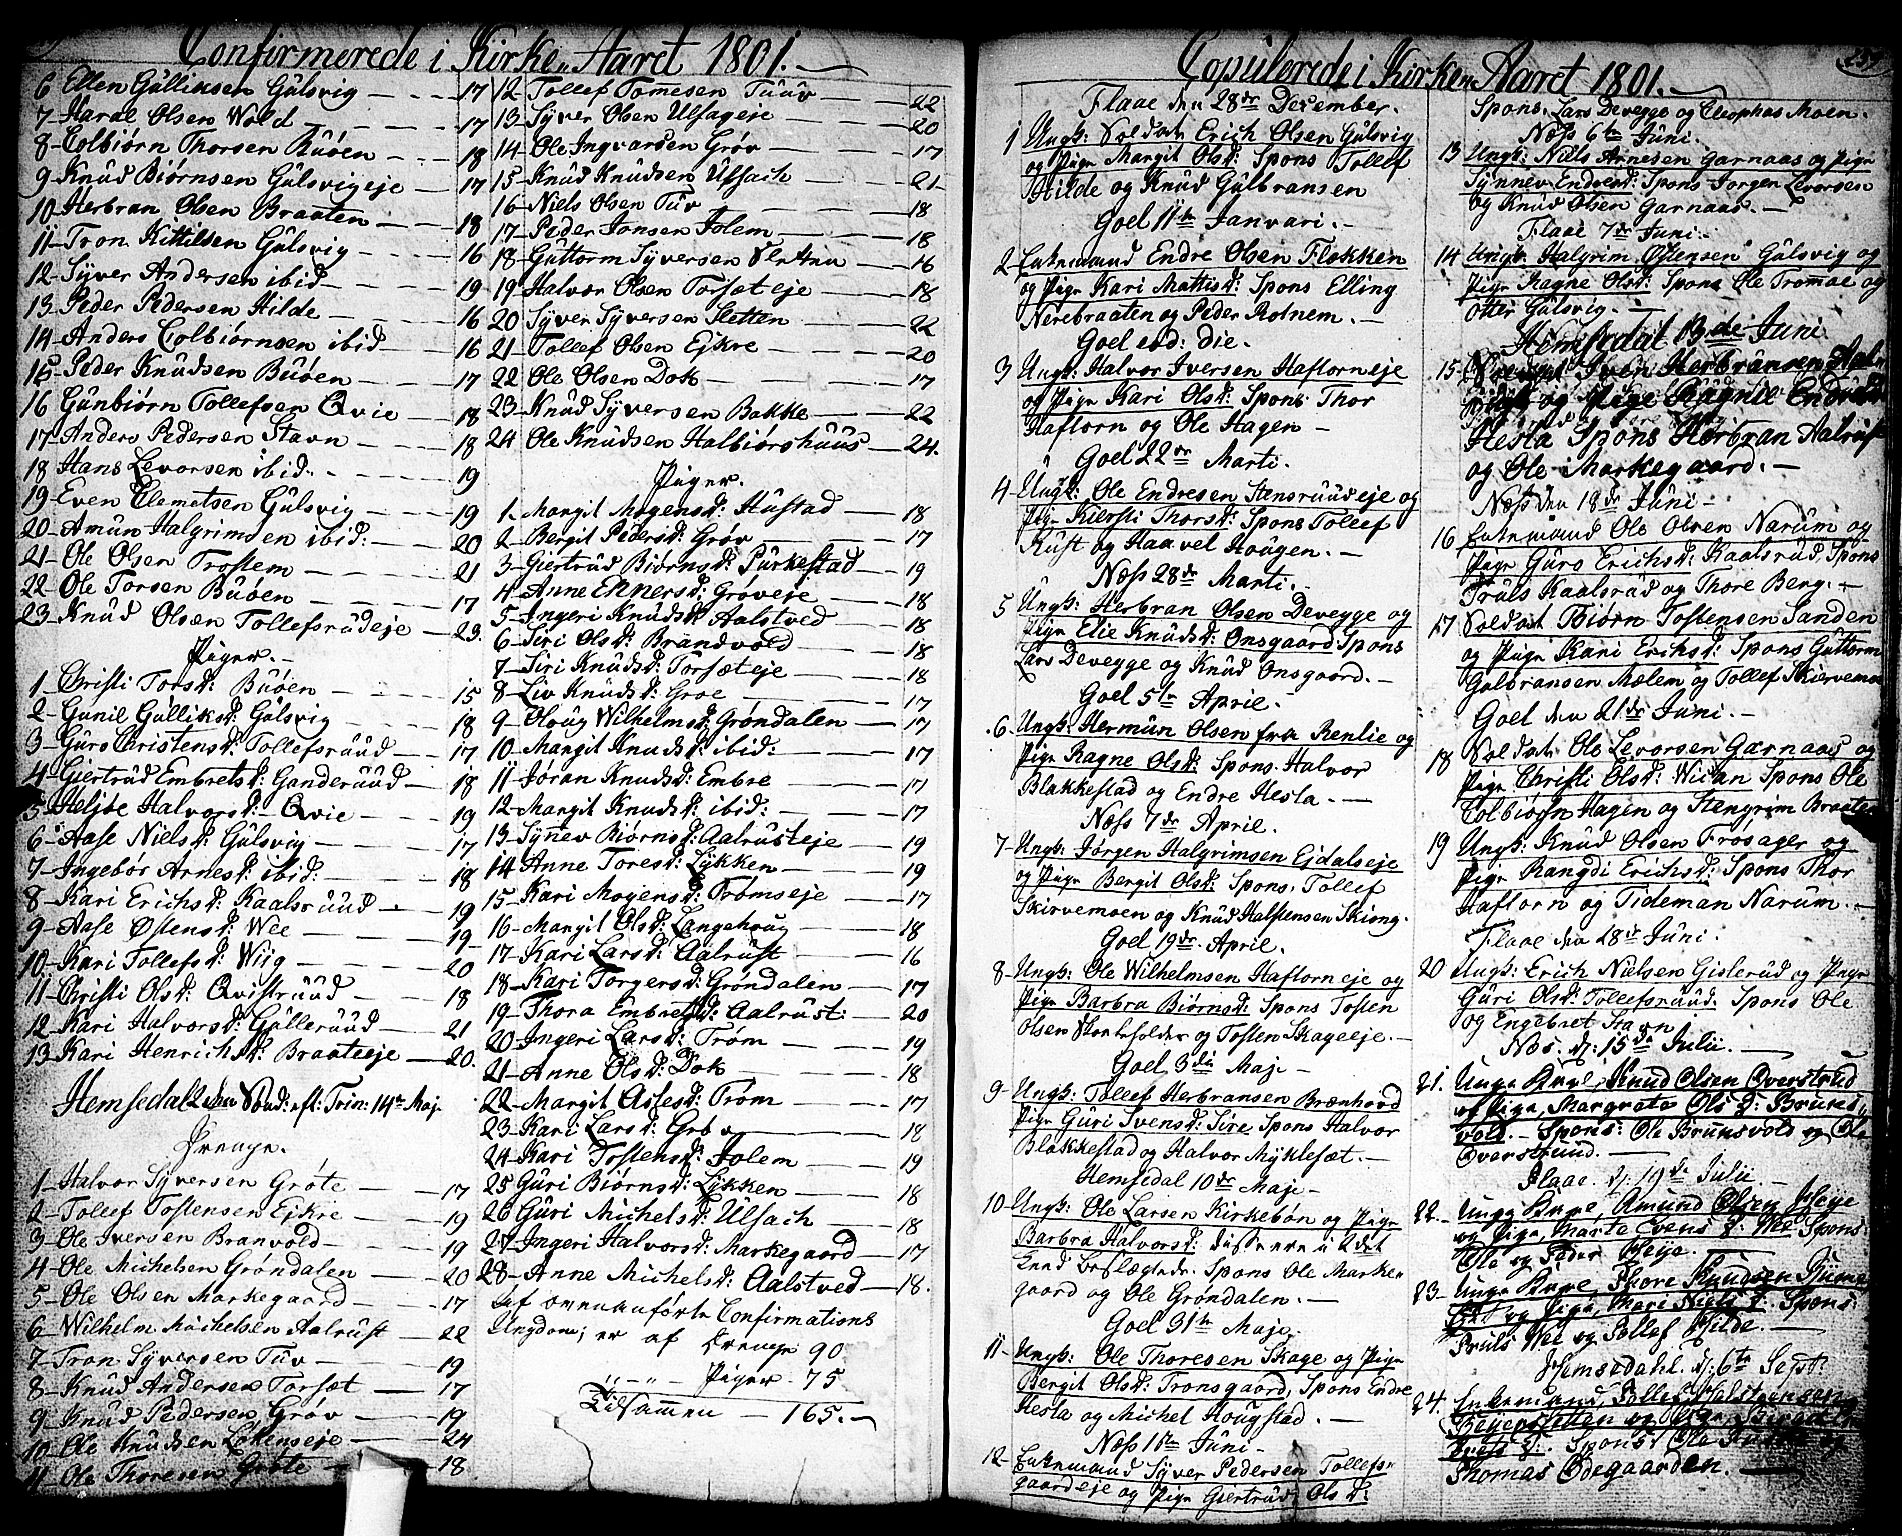 Confirmerede i Kirke Aaret 1801.
6 Ellen Gulliksen Gulsvig 17
7 Haral Olsen Wold 17
8 Colbiørn Thorsen Buøen 18
9 Knud Biørnsen Gulsvigeje 17
10 Herbran Olsen Braaten 18
11 Tron Kittilsen Gulsvig 16
12 Syver Andersen ibid 19
13 Peder Pedersen Hilde 16
14 Anders Colbiørnsen ibid 16
15 Peder Knudsen Buøen 17
16 Gunbiørn Tollefsen Qvie 18
17 Anders Pedersen Stavn 18
18 Hans Levorsen ibid: 19
19 Even Clemetsen Gulsvig 19
20 Amun Halgrimsen ibid: 20
21 Ole Olsen Trostem 21
22 Ole Torsen Buøen 17
23 Knud Olsen Tollefsrudeje 23.
Piger.
1 Christi Torsd: Buøen 15
2 Gunil Gulliksd: Gulsvig 18
3 Guro Christensd: Tollefsruud 17
4 Giertrud Embretsd: Ganderuud 18
5 Helje Halvorsd: Qvie 19
6 Aase Nielsd: Gulsvig 17
7 Ingebor Arnesd: ibid: 18
8 Kari Erichsd: Kaalsruud 19
9 Aase Østensd: Wee 19
10 Kari Tollefsd: Wiig 20
11 Christi Olsd: Qvistruud 18
12 Kari Halvorsd: Gulleruud 21
13 Kari Henrichsd: Braateeje 20.
Hemsedal den Sønd: eft: Trin: 14de Maj
Drenge.
1 Halvor Syversen Grøte 17
2 Tollef Tostensen Ejkre 19
3 Ole Iversen Branvold 19
4 Ole Michelsen Grøndalen 20
5 Ole Olsen Markegaard 17
6 Wilhelm Michelsen Aalrust 22
7 Tron Syversen Tuv 19
8 Knud Andersen Torset 17
9 Knud Pedersen Grøv 19
10 Ole Knudsen Løkenseje 24
11 Ole Thoresen Grøte 18
12 Tollef Tomesen Tuuv 22
13 Syver Olsen Ulsageje 20
14 Ole Ingvarsen Grøv 17
15 Knud Knudsen Ulsach 21
16 Niels Olsen Tuv 18
17 Peder Jonsen Jolem 18
18 Guttorm Syversen 16
19 Halvor Olsen Torsæteje 18
20 Syver Syversen Sletten 22
21 Tollef Olsen Ejkre 20
22 Ole Olsen Dok 17
23 Knud Syversen Bakke 22
24 Ole Knudsen Halbiørshuus 24.
Piger.
1 Margit Mogensd: Hustad 18
2 Bergit Pedersd: Grøv 17
3 Giertrud Biørnsd: Purkestad 19
4 Anne Ehnersd: Grøveje 18
5 Ingeri Knudsd: Aalstved 18
6 Siri Olsd: Brandvold 18
7 Siri Knudsd: Torsæteje 18
8 Liv Knudsd: Groe 17
9 Houg Wilhelmsd: Grøndalen 17
10 Margit Knudsd: ibid: 17
11 Jøran Knudsd: Embre 17
12 Margit Knudsd: ibid: 17
13 Synnev Biørnsd: Aalrusteje 19
14 Anne Toresd: Lykken 19
15 Kari Mogensd: Trømseje 17
16 Margit Olsd: Langehoug 18
17 Kari Larsd: Aalrust 16
18 Kari Torgersd: Grøndalen 17
19 Thora Embretsd: Aalrust: 20
20 Ingeri Larsd: Trøm 19
21 Anne Olsd: Dok 18
22 Margit Aslesd: Trøm 17
23 Kari Larsd: Grøv 18
24 Kari Tostensd: Jolem 19
25 Guri Biørnsd: Lykken 18
26 Guri Michelsd: Ulsach 18
27 Ingeri Halvorsd: Markegaard 17
28 Anne Michelsd: Aalstved 18.
Af ovenanførte Confirmations
Ungdom, er af Drenge 90
Piger 75
Tilsammen 165.
Copulerede i Kirke Aaret 1801.
Flaae den 28de December.
1 Ungk: Soldat Erich Olsen Gulsvig
og Pige Margit Olsd: Spons Tollef
Hilde og Knud Gulbransen
Goel 11te Januari.
2 Enkemand Endre Olsen Flokken
og Pige Kari Mattisd: Spons Elling
Nerebraaten og Peder Rotnem.
Goel eod: die.
3 Ungk: Halvor Iversen Haftorneje
og Pige Kari Olsd: Spons: Thor
Haftorn og Ole Hagen
Goel 22de Marti.
4 Ungk: Ole Endresen Stensruudeje og
Pige Kiersti Thorsd: Spons Tollef
Rust og Haavel Hougen.
Næss 28de Marti.
5 Ungk: Herbran Olsen Devegge og
Pige Elie Knudsd: Onsgaard Spons
Lars Devegge og Knud Onsgaard.
Goel 5te April.
6 Ungk: Hermun Olsen fra Renlie og
Pige Ragne Olsd: Spons. Halvor
Blakkestad og Endre Hesla.
Næss 7de April.
7 Ungk: Jørgen Halgrimsen Ejdalseje
og Pige Bergit Olsd: Spons. Tollef
Skirvemoen og Knud Halstensen Skiong.
Goel 19de April.
8 Ungk: Ole Wilhelmsen Haftorneje og
Pige Barbra Biørnsd: Spons Tosten
Olsen og Tosten Skageeje.
Goel 3die Maj
9 Ungk: Tollef Herbransen Brænhovd
Pige Guri Svensd: Sire Spons Halvor
Blakkestad og Halvor Myklesæt.
Hemsedal 10de Maj
10 Ungk: Ole Larsen Kirkebøn og Pige
Barbra Halvorsd: disse ere i 2det
Leed beslægtede. Spons Ole Marke-
gaard og Ole Grøndalen.
Goel 31te Maj
11 Ungk: Ole Thoresen Skage og Pige
Bergit Olsd: Tronsgaard, Spons Endre
Hesla og Michel Hougstad.
Næss 1te Juni
12 Enkemand Syver Pedersen Tollefs-
gaardeje og Pige Giertrud Olsd:
Spons. Lars Devegge og Cleophas Moen.
Næss 6te Juni.
13 Ungk: Niels Arnesen Garnaas og Pige
Synnev Endresd: Spons Jørgen Levorsen
og Knud Olsen Garnaas.
Flaae 7de Juni.
14 Ungk: Halgrim Østensen Gulsvig og
Pige Ragne Olsd: Spons Ole Tromae og
Otter Gulsvig.
Hemsedal 13de Juni
15 Iven Herbransen
og Pige Ragnil
Hesla Spons Herbran Aalrust
og Ole Markegaard.
Næss den 18de Juni
16 Enkemand Ole Olsen Narum og
Pige Guro Erichsd: Kaalsrud, Spons
Truls Kaalsrud og Thore Berg.
17 Soldat Biørn Tostensen Sanden
og Pige Kari Eriksd: Spons Guttorm
Gulbransen Mælem og Tollef Skirvemoen
Goel den 21de Juni.
18 Soldat Ole Levorsen Garnaas og
Pige Christi Olsd: Wican Spons Ole
Colbiørn Hagen og Stengrim Braaten
19 Ungk: Knud Olsen Frosager og
Pige Rangdi Erichsd: Spons Thor
Haftorn og Tideman Narum.
Flaae den 28de Juni.
20 Ungk: Erich Nielsen Gislerud og Pige
Guri Olsd: Tollefsruud. Spons Ole
og Engebret Stavn
Næs. d: 15de Julii.
21. Unge Karl, Knud Olsen Overstrud
og Pige, Margrete Ols d: Bruns-
vold. Spons: Ole Brunsvold og Ole
Overstruud.
Flaae. d: 19de Julii.
22. Unge Karl, Amund Olsen Heje
og Pige, Marte Evens d: Wee Spons.
Ole og Peder Heje.
23. Unge Karl, Thore Knudsen
og Pige, Mari Niels d: Spons.
Truls Wee og Tollef Hilde.
Hemsedahl. d: 6te Sept:
24. Enkemand, Tollef
og Pige,
Spons: Ole
Thomas Ødegaarden.